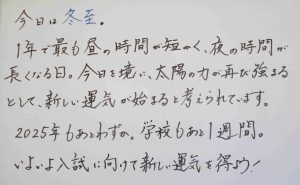 今日は冬至。
1年で最も昼の時間が短かく、夜の時間が
長くなる日。今日を境に、太陽の力が再び強まる
として、新しい運気が始まると考えられています。
2025年もあとわずか。学校もあと1週間。
いよいよ入試に向けて新しい運気を得よう!